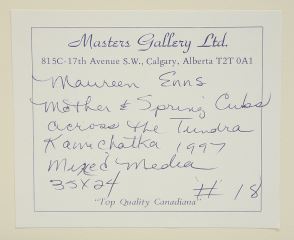 Masters Gallery Ltd.
815C-17th Avenue S.W., Calgary, Alberta T2T 0A1
Maureen Enns
Mother & Spring Cubs
across the Tundra
Kamchatka 1997
Mixed Media
35x24 # 18
"Top Quality Canadiana"